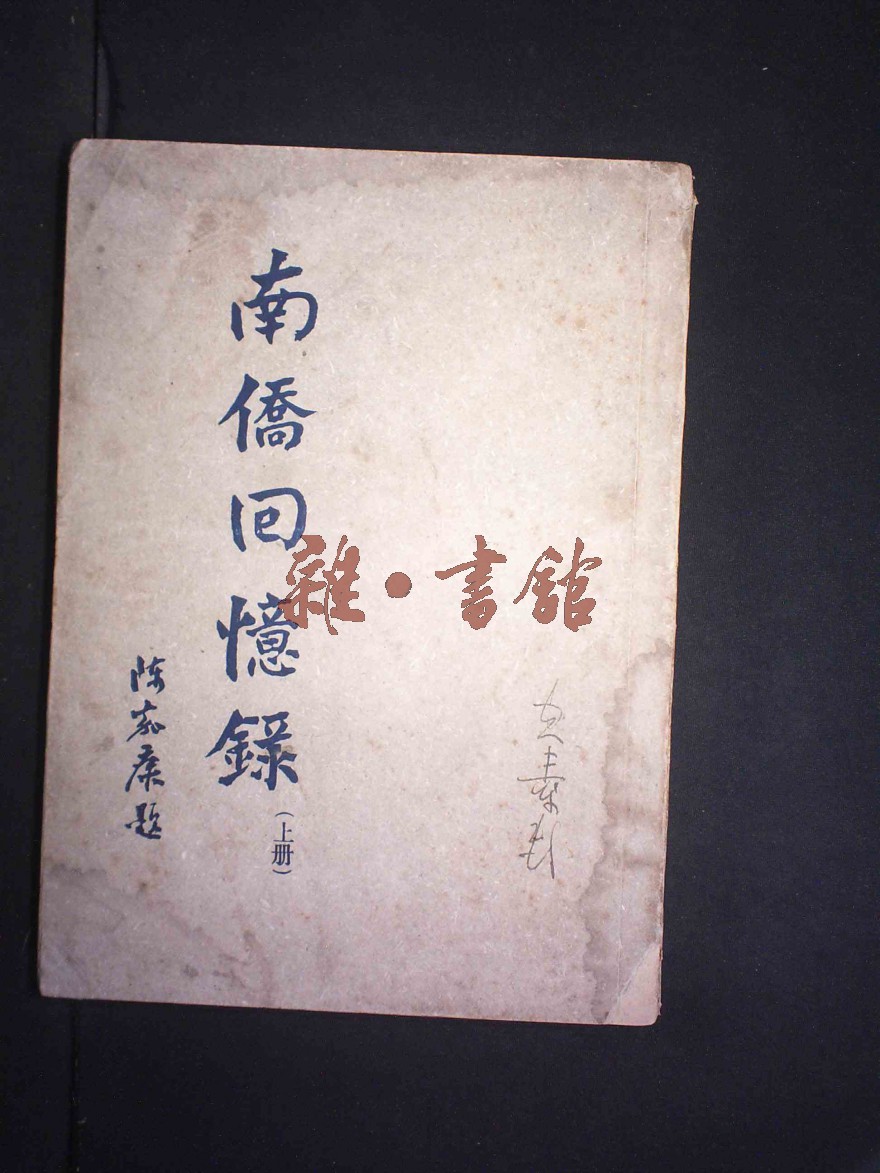 南僑回憶錄
（上册）
陈嘉庚題
雜·書館